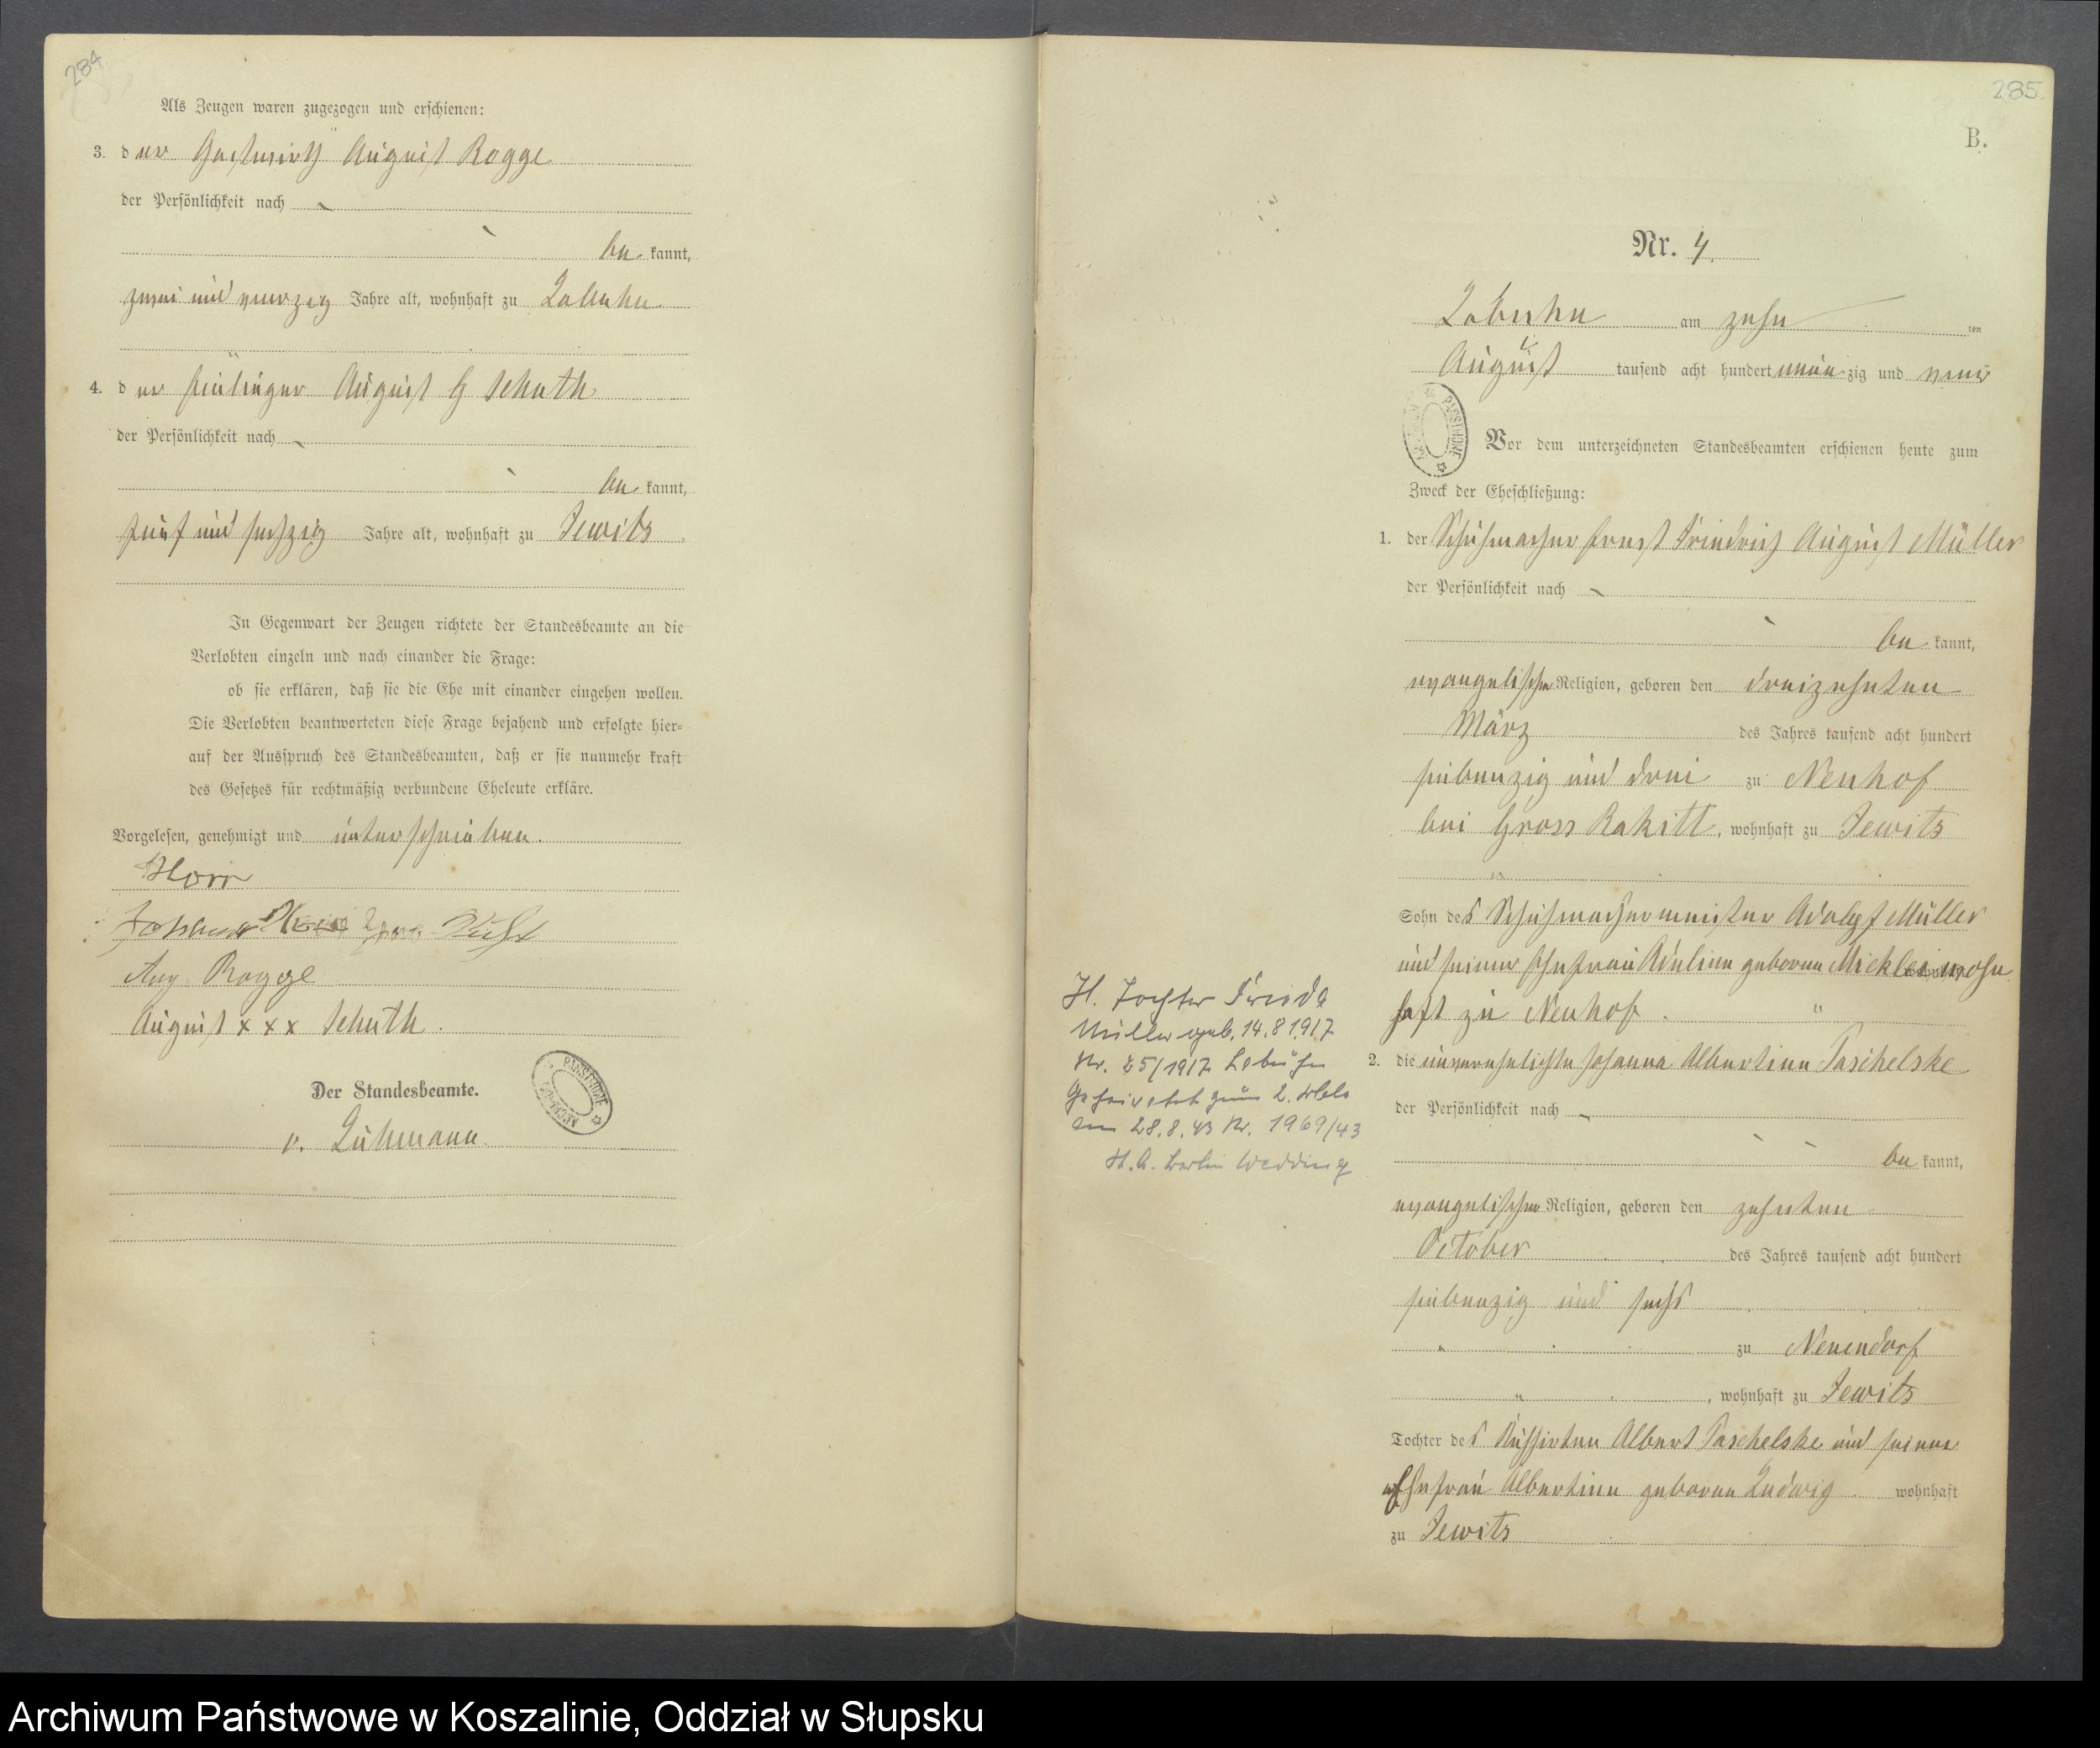 284
Als Zeugen waren zugezogen und erschienen:
3. der Gastwirth August Rogge
der Persönlichkeit nach
be kannt,
zwei und vierzig Jahre alt, wohnhaft zu Labuhn
4. der August Schuth
der Persönlichkeit nach
be kannt,
fünf und sechzig Jahre alt, wohnhaft zu Jewitz
In Gegenwart der Zeugen richtete der Standesbeamte an die
Verlobten einzeln und nach einander die Frage:
ob sie erklären, daß sie die Ehe mit einander eingehen wollen.
Die Verlobten beantworteten diese Frage bejahend und erfolgte hier-
auf der Ausspruch des Standesbeamten, daß er sie nunmehr kraft
des Gesetzes für rechtmäßig verbundene Eheleute erkläre.
Vorgelesen, genehmigt und unterschrieben.
Johanna
Aug. Rogge
August x x x Schuth.
Der Standesbeamte.
v. Lühmann.
285.
B.
Nr. 4.
Labuhn am zehn ten
August tausend acht hundert neunzig und neun
Vor dem unterzeichneten Standesbeamten erschienen heute zum
Zweck der Eheschließung:
1. der Schuhmacher Ernst Friedrich August Müller
der Persönlichkeit nach
be kannt,
evangelischer Religion, geboren den dreizehnten
März des Jahres tausend acht hundert
siebenzig und drei zu Neuhof
bei Gross Rakitt, wohnhaft zu Jewitz
Sohn des Schuhmachermeister Adolf Müller
und seiner Ehefrau geborene wohn
haft zu Neuhof.
H. Tochter Frieda
Müller geb. 14.8.1917
Nr. 25/1917 Labuhn
Geheiratet zum 2. Male
am 28.8.43 Nr. 1969/43
St.A. Berlin Wedding
2. die unverehelichte Johanna Albertine Paschelske
der Persönlichkeit nach
be kannt,
evangelischer Religion, geboren den zehnten
October des Jahres tausend acht hundert
siebenzig und sechs
zu Neuendorf
, wohnhaft zu Jewitz
Tochter des Albert Paschelske und seiner
Ehefrau Albertine geborene Ludwig wohnhaft
zu Jewitz
Archiwum Państwowe w Koszalinie, Oddział w Słupsku